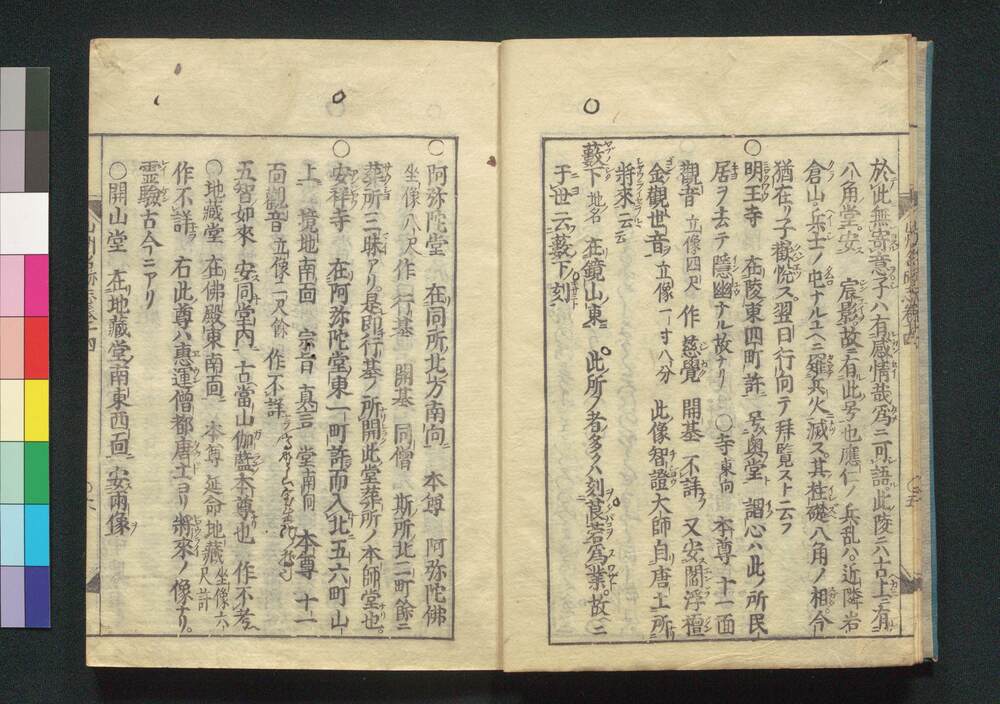 於此無寄意子ハ有感情哉為ニ可語此陵ニハ古上ニ有
八角堂安 宸影故ニ有此号也應仁ノ兵乱ハ近隣岩
倉山ノ兵士ノ屯ナルユヘニ罹兵火滅ス其柱礎八角ノ相今
猶在リ予歡悦ス翌日行向テ拜覧スト云フ
○明王寺 在陵東四町許 号奥堂 謂心ハ此ノ所民
居ヲ去テ隱幽ナル故ナリ ○寺東向 本尊 十一面
觀音 立像四尺 作 慈覺 開基 不詳 又安閻浮檀
金觀世音 立像一寸八分 此像智證大師自唐土所
將來云云
藪下 地名 在鏡山東 此所ノ者多ク刻莨菪為業故ニ
于世云藪下刻
○阿弥陀堂 在同所北方南向 本尊 阿弥陀佛
坐像八尺作 行基 開基 同僧 斯所北二町餘ニ
葬所三昧アリ是即行基ノ所開此堂葬所ノ本師堂也
○安祥寺 在阿弥陀堂東一町許而入北五六町山
上 境地南面 宗旨 真言 堂南向 本尊 十一
面觀音 立像二尺餘 作不詳
五智如來 安同堂内 古當山伽藍本尊也 作不考
○地藏堂 在佛殿東南面 本尊 延命地藏 坐像六尺許
作不詳 右此尊ハ惠運僧都唐土ヨリ將來ノ像ナリ
靈驗古今ニアリ
○開山堂 在地藏堂南東西面 安兩像